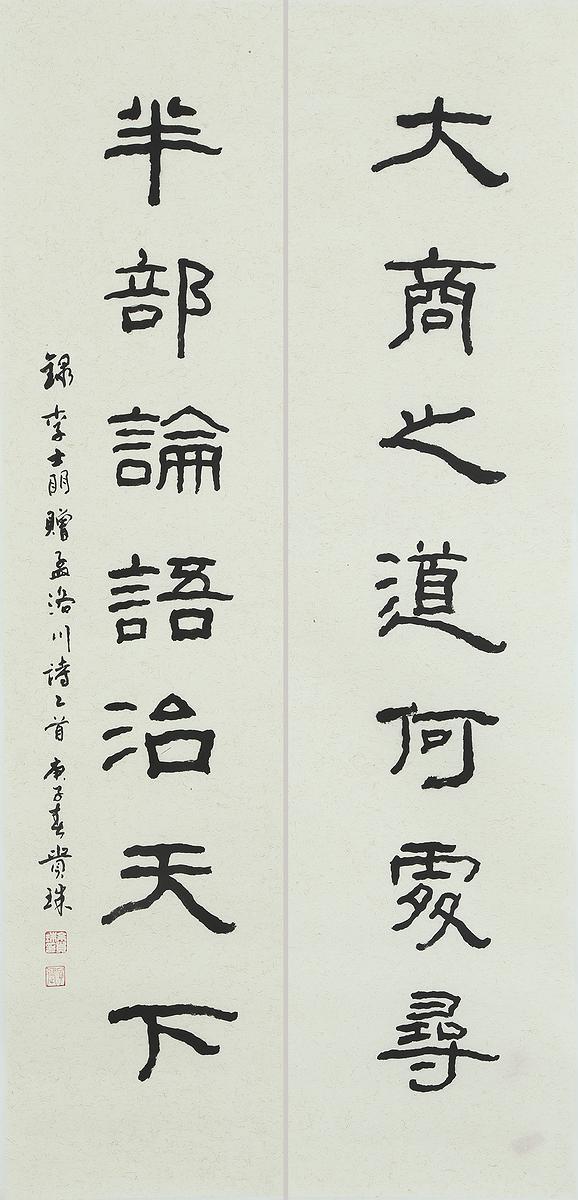 大商之道何處尋
半部論語治天下
錄李士朋贈孟洛川詩之首 庚子春 貴珠